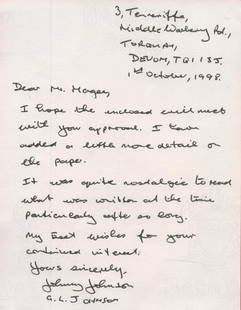 3, Teneriffe,
Middle Warberry Rd.,
TORQUAY,
DEVON, TQ1 1
1st October, 1998.
Dear Mr.
I hope the enclosed will meet
with your approval. I have
added a little more detail on
the page.
It was quite nostalgic to read
what was written at the time
particularly after so long.
My best wishes for your
continued interest.
Yours sincerely,
Johnny Johnson
G. L. JOHNSON